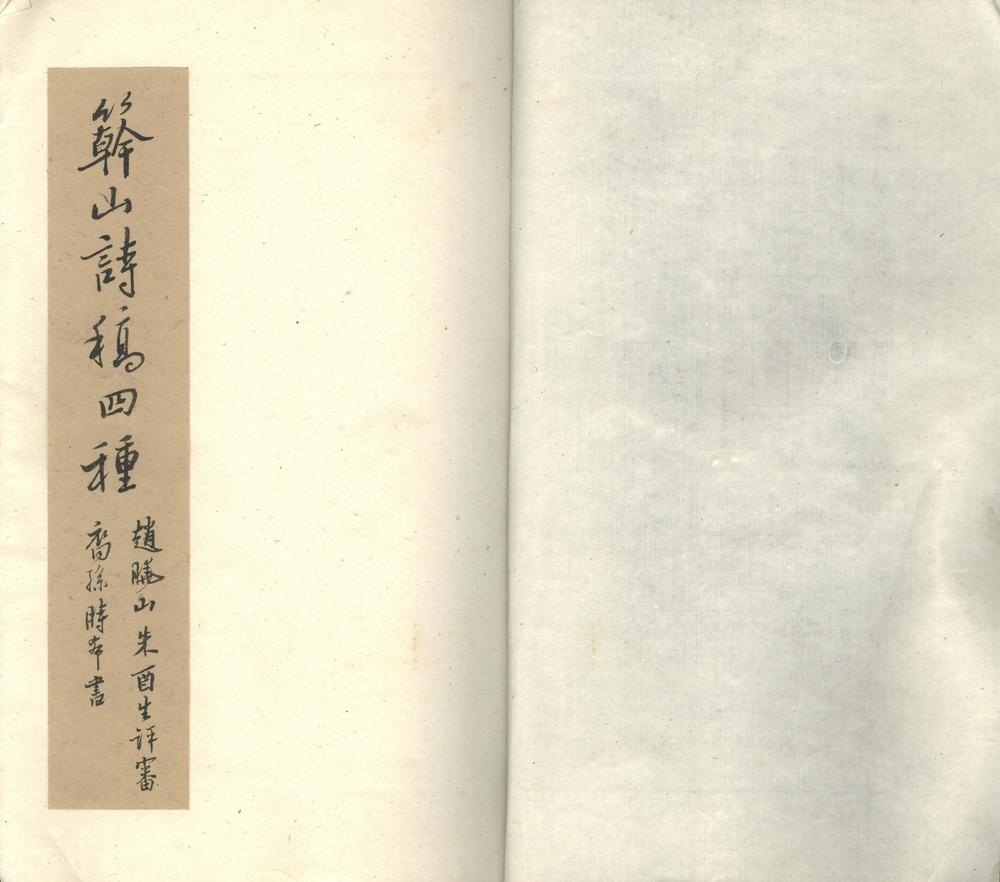 簳山詩稿四種
趙曉山朱酉生評審
裔孫時希書